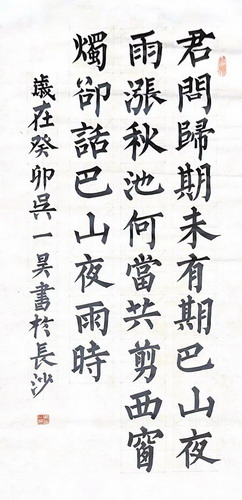 君問歸期未有期巴山夜
雨漲秋池何當共剪西窗
燭卻話巴山夜雨時
歲在癸卯吳一昊書於長沙